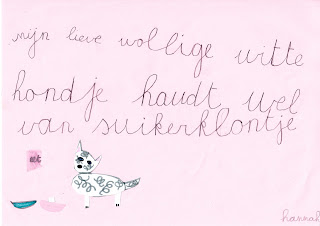 mijn lieve wollige witte
hondje haudt wel
van suikerklontje
hannah